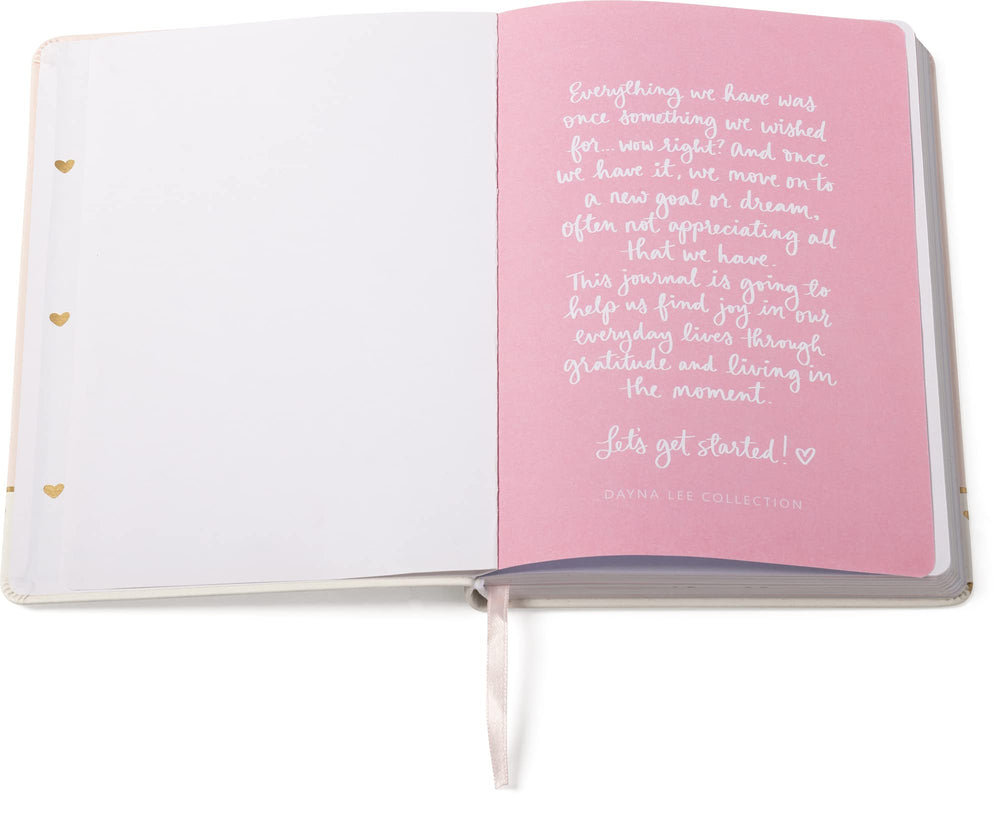 Everything we have was
once something we wished
for... wow right? And once
we have it, we move on to
a new goal or dream,
often not appreciating all
that we have.
This journal is going to
help us find joy in our
everyday lives through
gratitude and living in
the moment.
Let's get started! ♡
DAYNA LEE COLLECTION